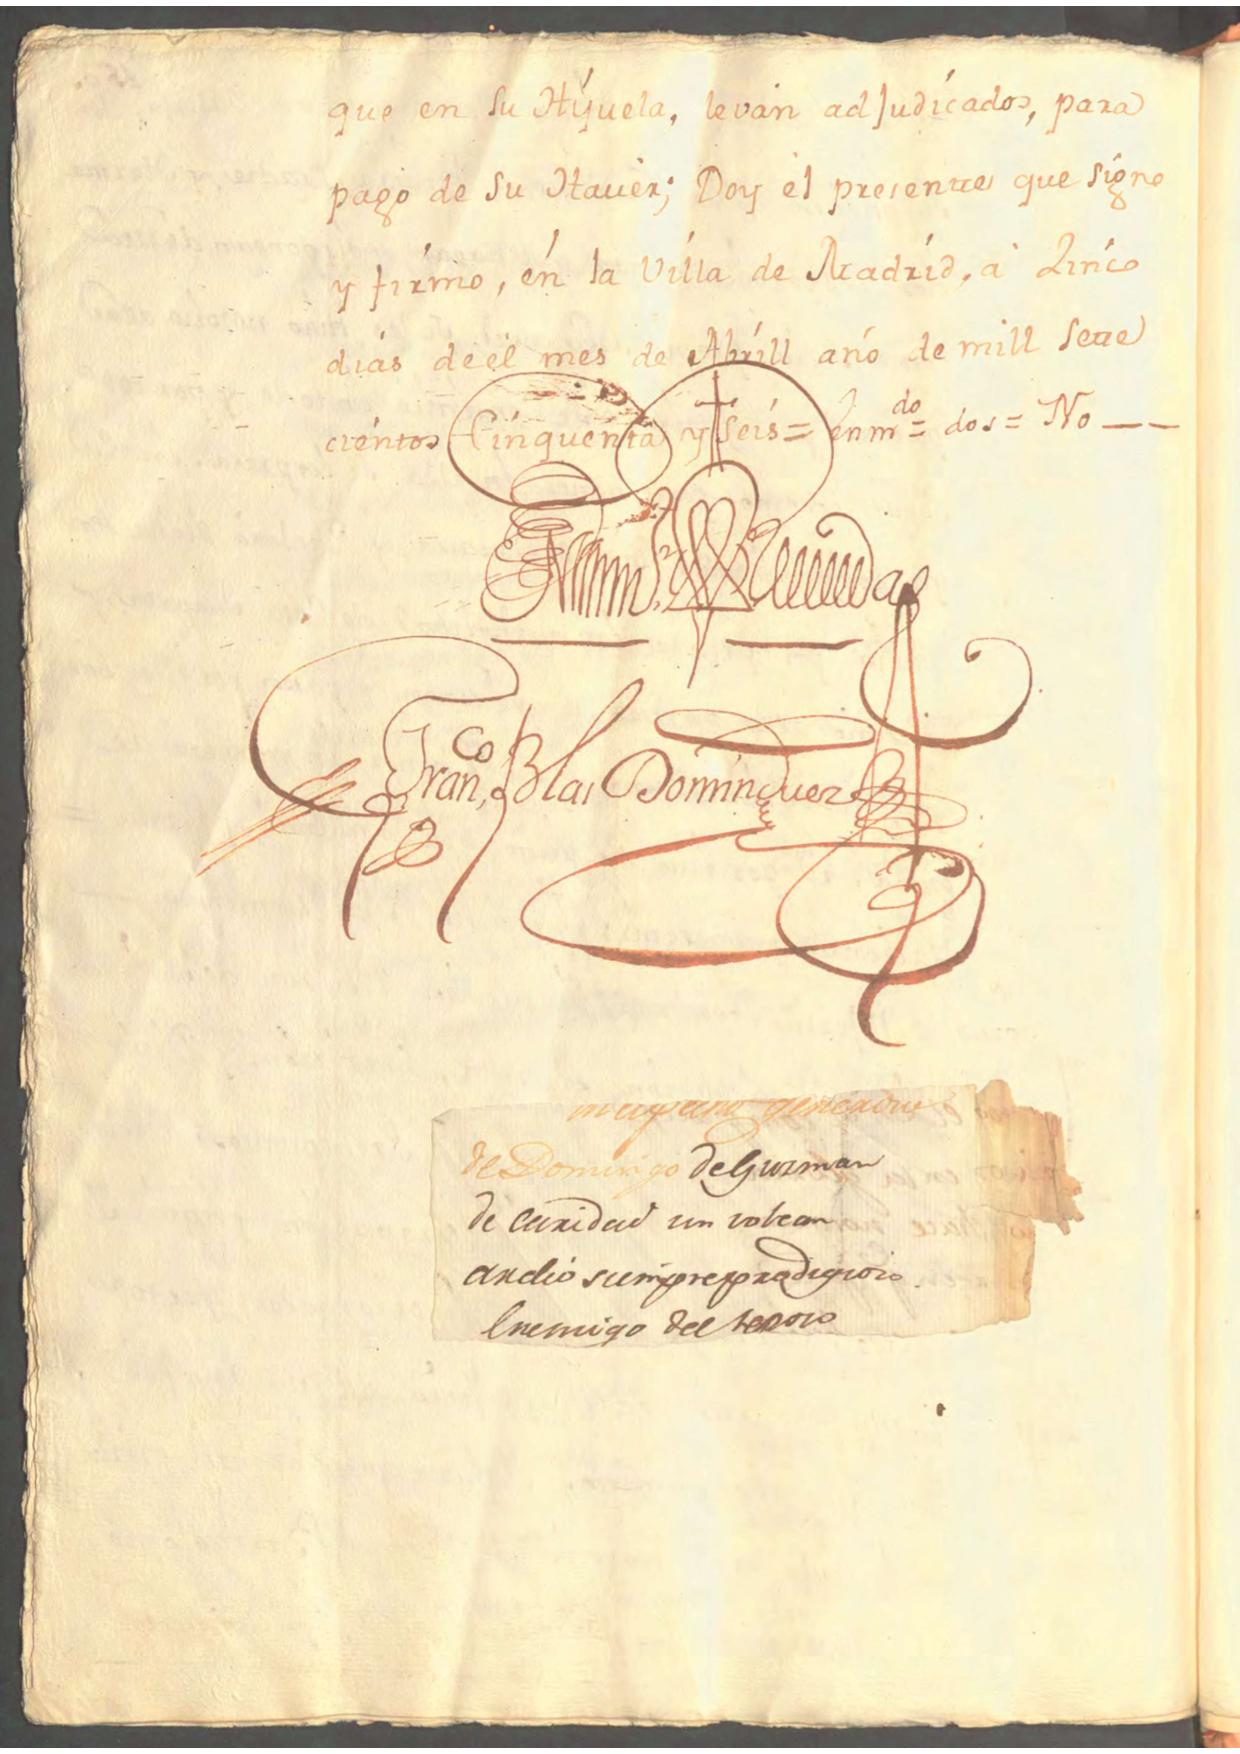 que en su Hijuela, levan adjudicados, para
pago de su Haver; Doy el presente que signo
y firmo, en la Villa de Madrid, a Zinco
dias de el mes de Abrill año de mill sete
cientos Cinquenta y seis = enmdo = dos = No
Franco Blas Dominguez
generoso
de Domingo de Guzman
de caridad un volcan
ardio siempre prodigioso.
Enemigo del